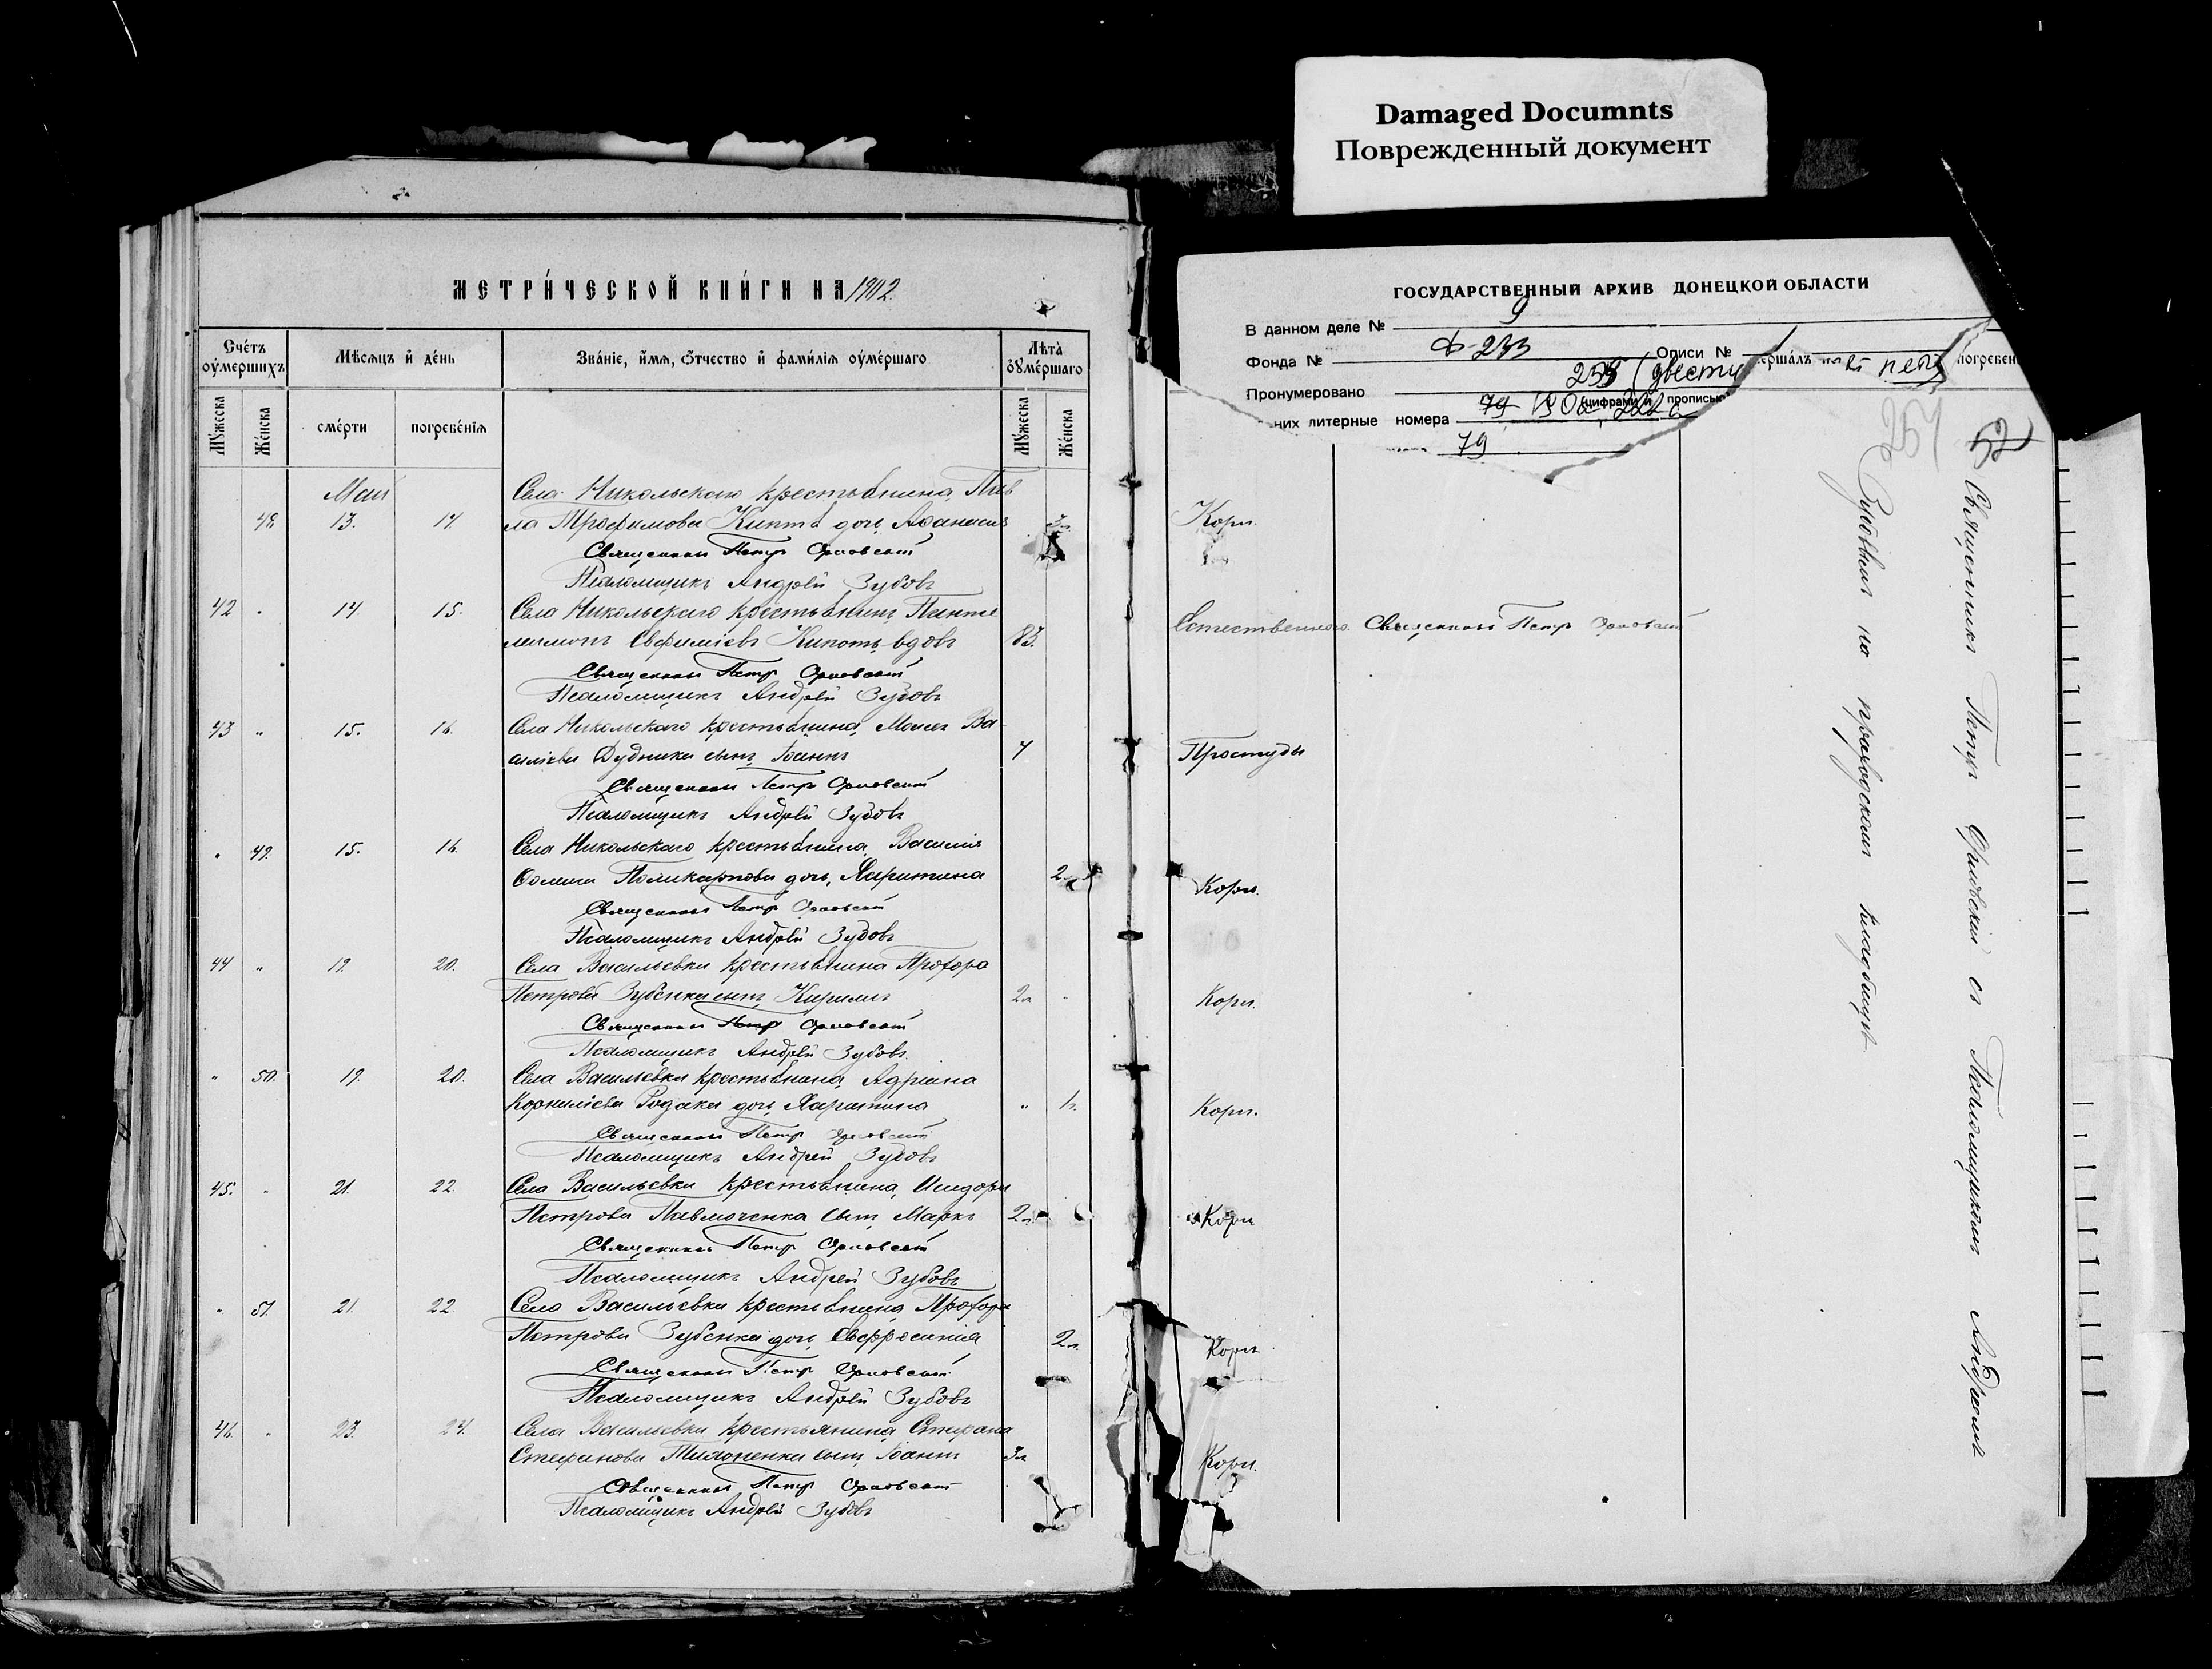 Damaged Documnts
Поврежденный документ
МЕТРИ́ЧЕСКОЙ КНИ́ГИ НА 1902.
Сче́тъ оу҆ме́ршихъ
Мѣ́сѧцъ и҆ де́нь
Зва́нїе, и҆́мѧ, ѻ҆́тчество и҆ фами́лїѧ оу҆ме́ршаго
Лѣ́та оу҆ме́ршаго
Мꙋ́жеска
Же́нска
сме́рти
погребе́нїѧ
Мꙋ́жеска
Же́нска
Май
Села Никольскаго крестьянина Пав
48. 13. 14. ла Трофимова Кипта дочь Афанасія
Священникъ Петръ Орловскій
Псаломщикъ Андрей Зубовъ
42 14 15. Села Никольскаго крестьянинъ Панте
леимонъ Евфиміевъ Кипоть вдовъ 83.
Священникъ Петръ Орловскій
Псаломщикъ Андрей Зубовъ
43 " 15. 16. Села Никольскаго крестьянина Моисея Ва
силіева Дудника сынъ Іоаннъ
Священникъ Петръ Орловскій
Псаломщикъ Андрей Зубовъ
49. 15. 16. Села Никольскаго крестьянина Василія
Поликарпова дочь Харитина 2
Священникъ Петръ Орловскій
Псаломщикъ Андрей Зубовъ
44 " 19. 20. Села Васильевки крестьянина Прохора
Петрова Зубенка сынъ Кириллъ 2л
Священникъ Петръ Орловскій
Псаломщикъ Андрей Зубовъ.
" 50. 19. 20. Села Васильевки крестьянина Адріана
Корниліева дочь Харитина " 1г.
Священникъ Петръ Орловскій
Псаломщикъ Андрей Зубовъ
45. 21. 22. Села Васильевки крестьянина Исидора
Петрова Павлюченка сынъ Маркъ 2
Священникъ Петръ Орловскій
Псаломщикъ Андрей Зубовъ
51. 21. 22. Села Васильевки крестьянина Прохора
Петрова Зубенка дочь Евфросинія 2л.
Священникъ Петръ Орловскій
Псаломщикъ Андрей Зубовъ
46 23. 24. Села Васильевки крестьянина Стефана
Стефанова сынъ Іоаннъ 3л
Священникъ Петръ Орловскій
Псаломщикъ Андрей Зубовъ
ГОСУДАРСТВЕННЫЙ АРХИВ ДОНЕЦКОЙ ОБЛАСТИ
В данном деле № 9
Фонда № Ф-233 Описи №
Пронумеровано (двести
(цифрами и прописью
них литерные номера
79
погребен
257
52
Кори.
Естественною Священникъ Петръ Орловскій
Простуды
Кори.
Кори.
Кори.
Кори
Кори
Кори.
Священникъ Петръ Орловскій съ Псаломщикомъ Андреемъ
Зубовымъ на приходскомъ кладбищѣ